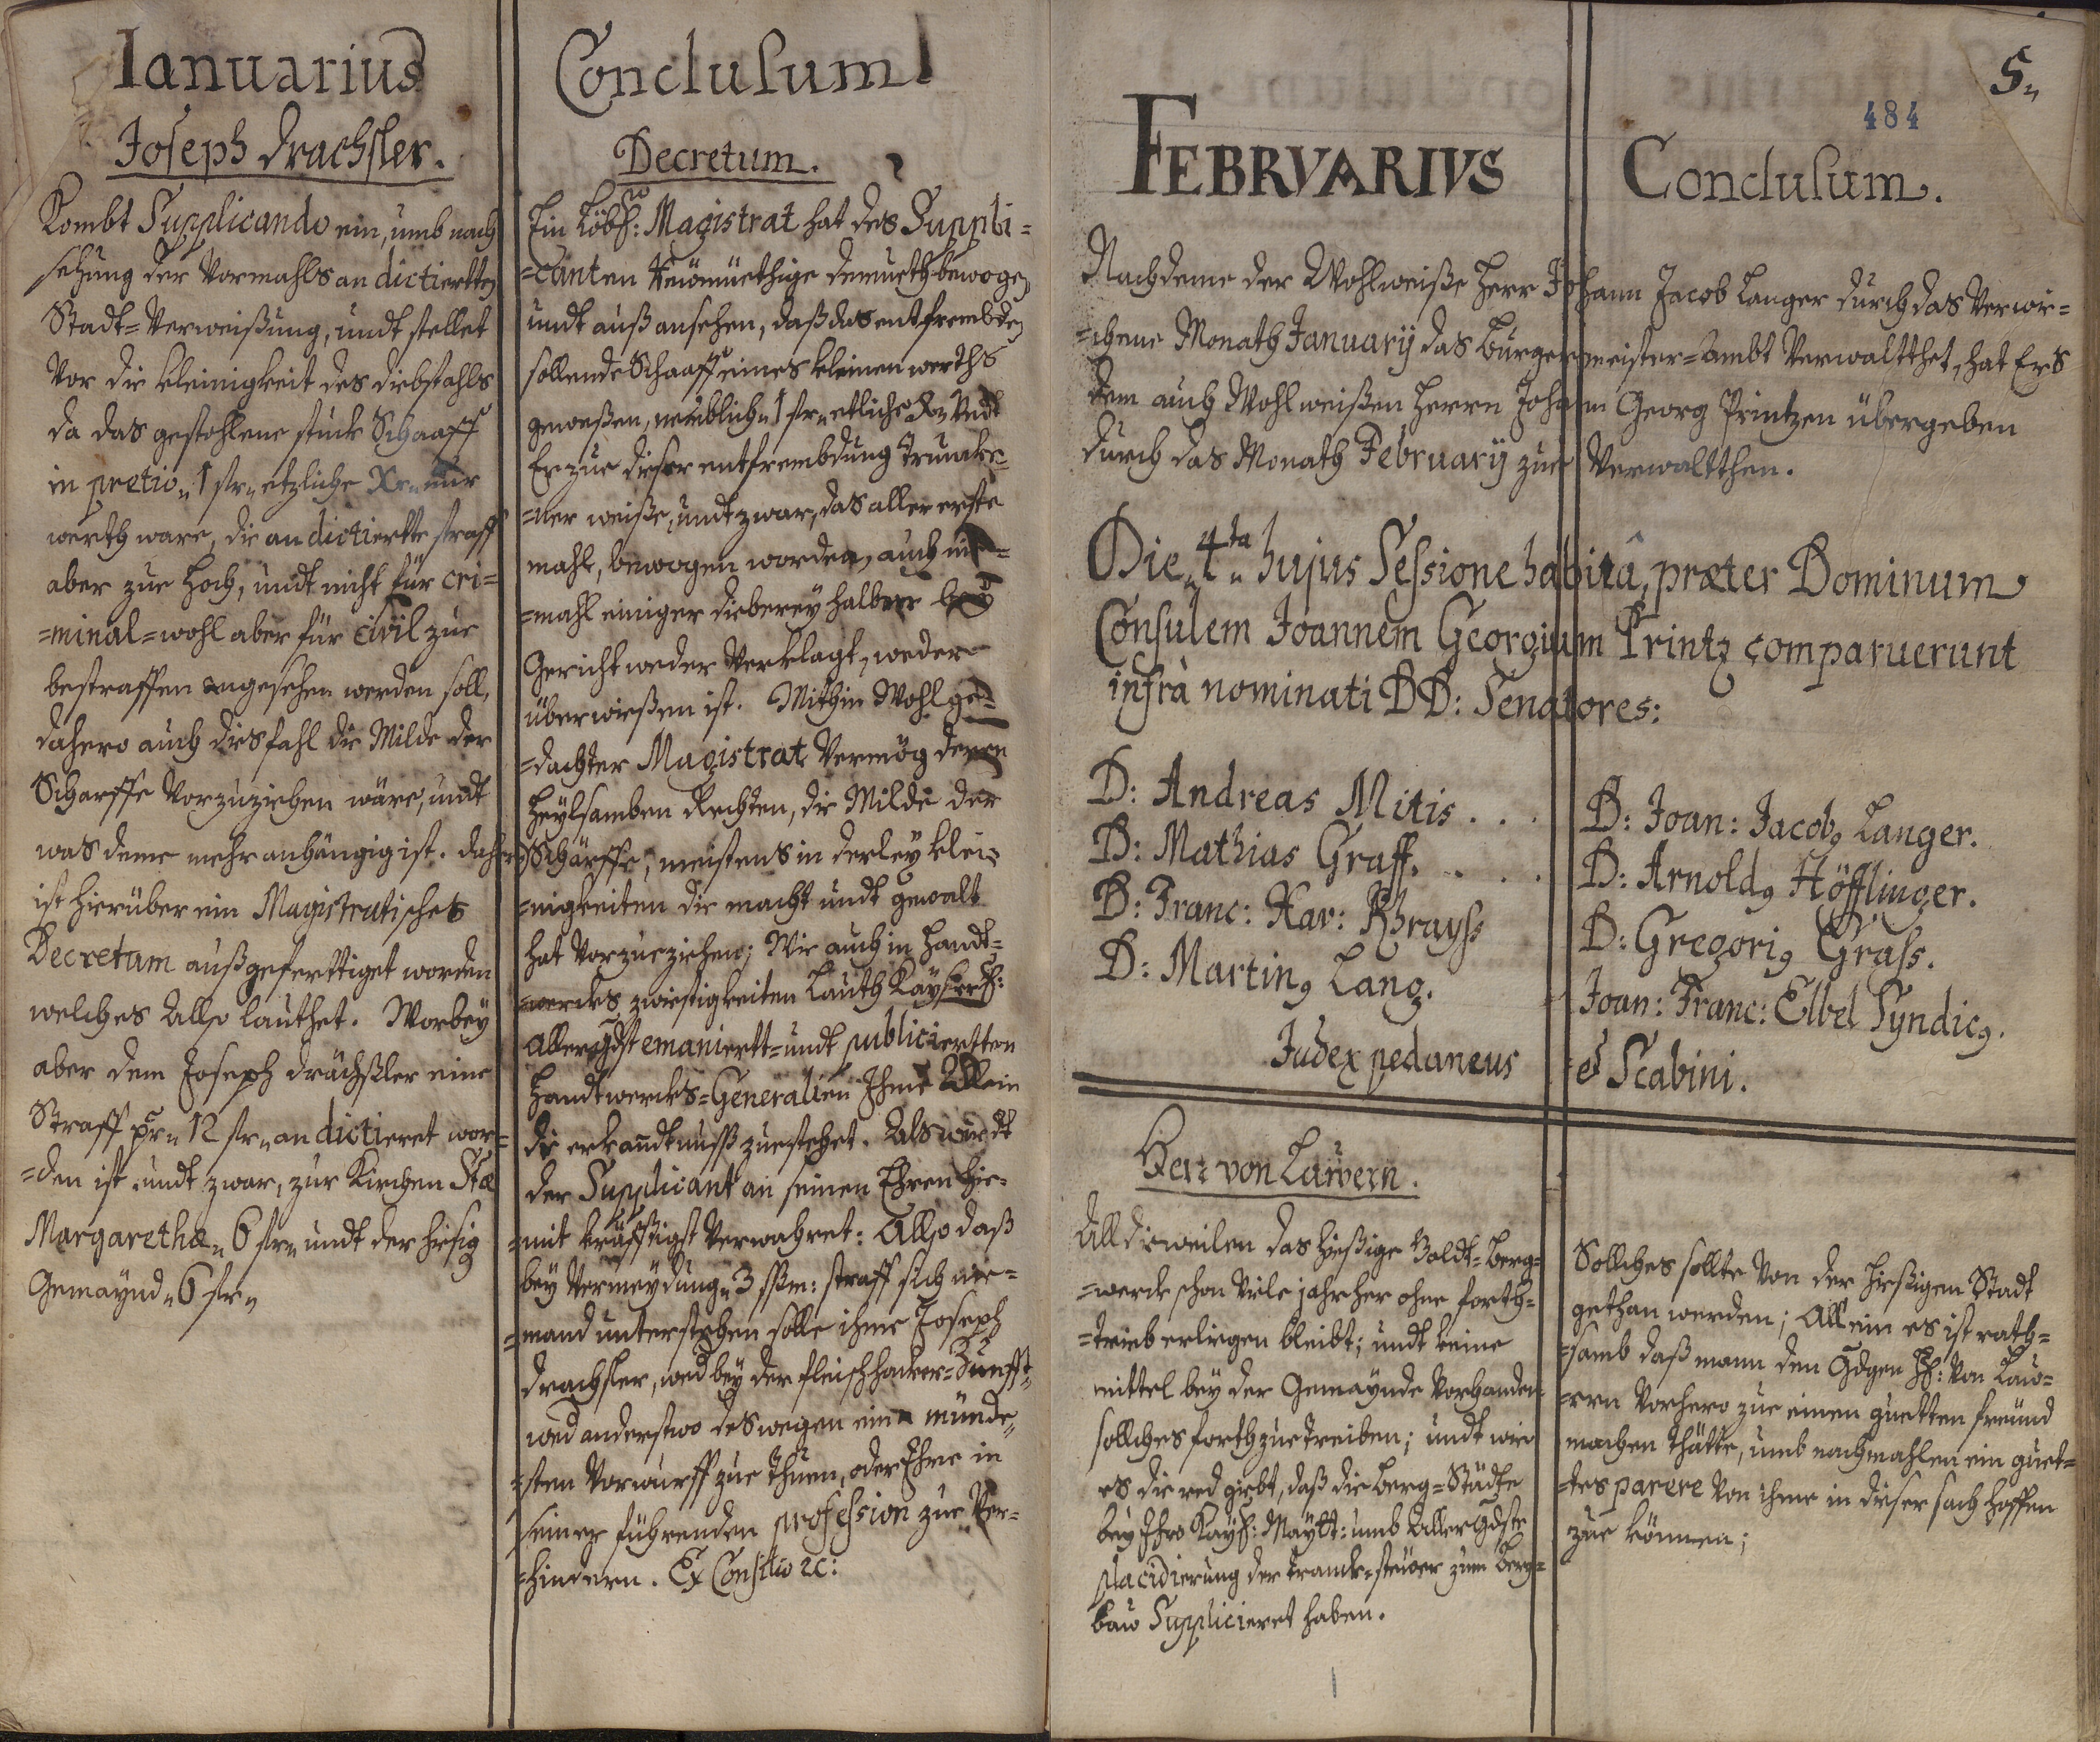 Ianuarius
Joseph Drachsler.
Kombt Supplicando ein, umb nach
sehung der Vormahls an dictirtten
Stadt=Verweißung, undt stellet
Vor die kleinigkeit des diebstahls
da das gestohlene stuck Schaaff
in pretio 1 fl etzliche Xr nur
werth ware, die an dictirtte straff
aber zue hoch, undt nicht für cri=
=minal=wohl aber für civil zue
bestraffen angesehen werden soll,
dahero auch diesfahl die Milde der
Schärffe Vorzuziehen wäre, undt
was deme mehr anhängig ist. daher
ist hierüber ein Magistratisches
Decretum außgeferttiget worden
welches Allso lauthet. Worbey
aber dem Joseph Drächsler eine
Straff pr 12 fl an dictieret wor=
=den ist undt zwar, zur Kirchen Stæ
Margarethæ 6 fl undt der hiesig
Gemaÿnd 6 fl
Conclusum
Decretum.
Ein Löbl: Magistrat hat des Suppli=
=canten demueth bewogen
undt auß ansehen, daß das entfrembden
sollende Schaaff eines kleinen werths
geweßen, nemblich 1 fl etliche Xr Undt
Er zue dieser entfrembdung Truncke=
=ner weiße, undt zwar, das aller erste
mahl, bewogen worden, auch nie=
=mahl einiger dieberey halber bey
Gericht weder Verklagt, weder
überwießen ist. Mithin Wohlge=
=dachter Magistrat Vermög deren
heylsamben Rechten, die Milde der
Schärffe, meistens in derley klei=
=nigkeiten die macht undt gewalt
hat Vorzueziehen; Wie auch in handt=
=wercks zwiestigkeiten Lauth Kayserl:
allergdst emanirtt=undt publicirtten
Handtwercks=Generalien Ihme Allein
die erkandtnuß zuestehet. Als würdt
der Supplicant an seinen Ehren hie=
=mit kräfftigst Verwahret: Allso daß
bey Vermeydung 3 ßm: straff sich nie=
=mand unterstehen solle ihme Joseph
Drachsler, wed bey der fleischhacker=Zunfft,
wed anderstwo deswegen ein münde=
=sten Vorwurff zue thuen, oder Ihne in
seiner führenden profession zue Ver=
=hindern. Ex Consilio ec:
5.
484
FEBRVARIVS
Conclusum.
Nachdeme der Wohlweiße Herr Johann Jacob Langer durch das Verwi=
=chene Monath Januarÿ das Burgermeister=Ambt Verwaltthet, hat Er's
dem auch Wohlweißen Herrn Johann Georg Printzen übergeben
durch das Monath Februarÿ zue Verwaltthen.
Die 4ta hujus Sessione habitâ, præter Dominum
Consulem Joannem Georgium Printz comparuerunt
infrà nominati DD: Senatores:
D: Andreas Mitis . . .
D: Mathias Graff. . . .
D: Franc: Xav: Khrayss
D: Martin9 Lang.
Judex pedaneus
D: Joan: Jacob9 Langer.
D: Arnold9 Höfflinger.
D: Gregori9 Grass.
Joan: Franc: Elbel Syndic9.
et Scabini.
Herr von Lawern.
Alldieweilen das hießige Goldt=Berg=
=werck schon Viele jahr her ohne forth=
=trieb erliegen bleibt; undt keine
mittel bey der Gemaynde Vorhanden
solches forthzuetreiben; undt wie
es die red giebt, daß die Berg=Städte
bey Ihro Kayß: Maÿtt: umb Allergdste
placidierung der tranck=steüer zum Berg=
bau Supplicieret haben.
Solliches sollte Von der hießigen Stadt
gethan werden; Allein es ist rath=
=samb daß mann den Gdgen H: Von Law=
=ern Vorhero zue einen guetten freünd
machen thätte, umb nachmahlen ein guet=
=tes parere Von ihme in dieser sach hoffen
zue können;